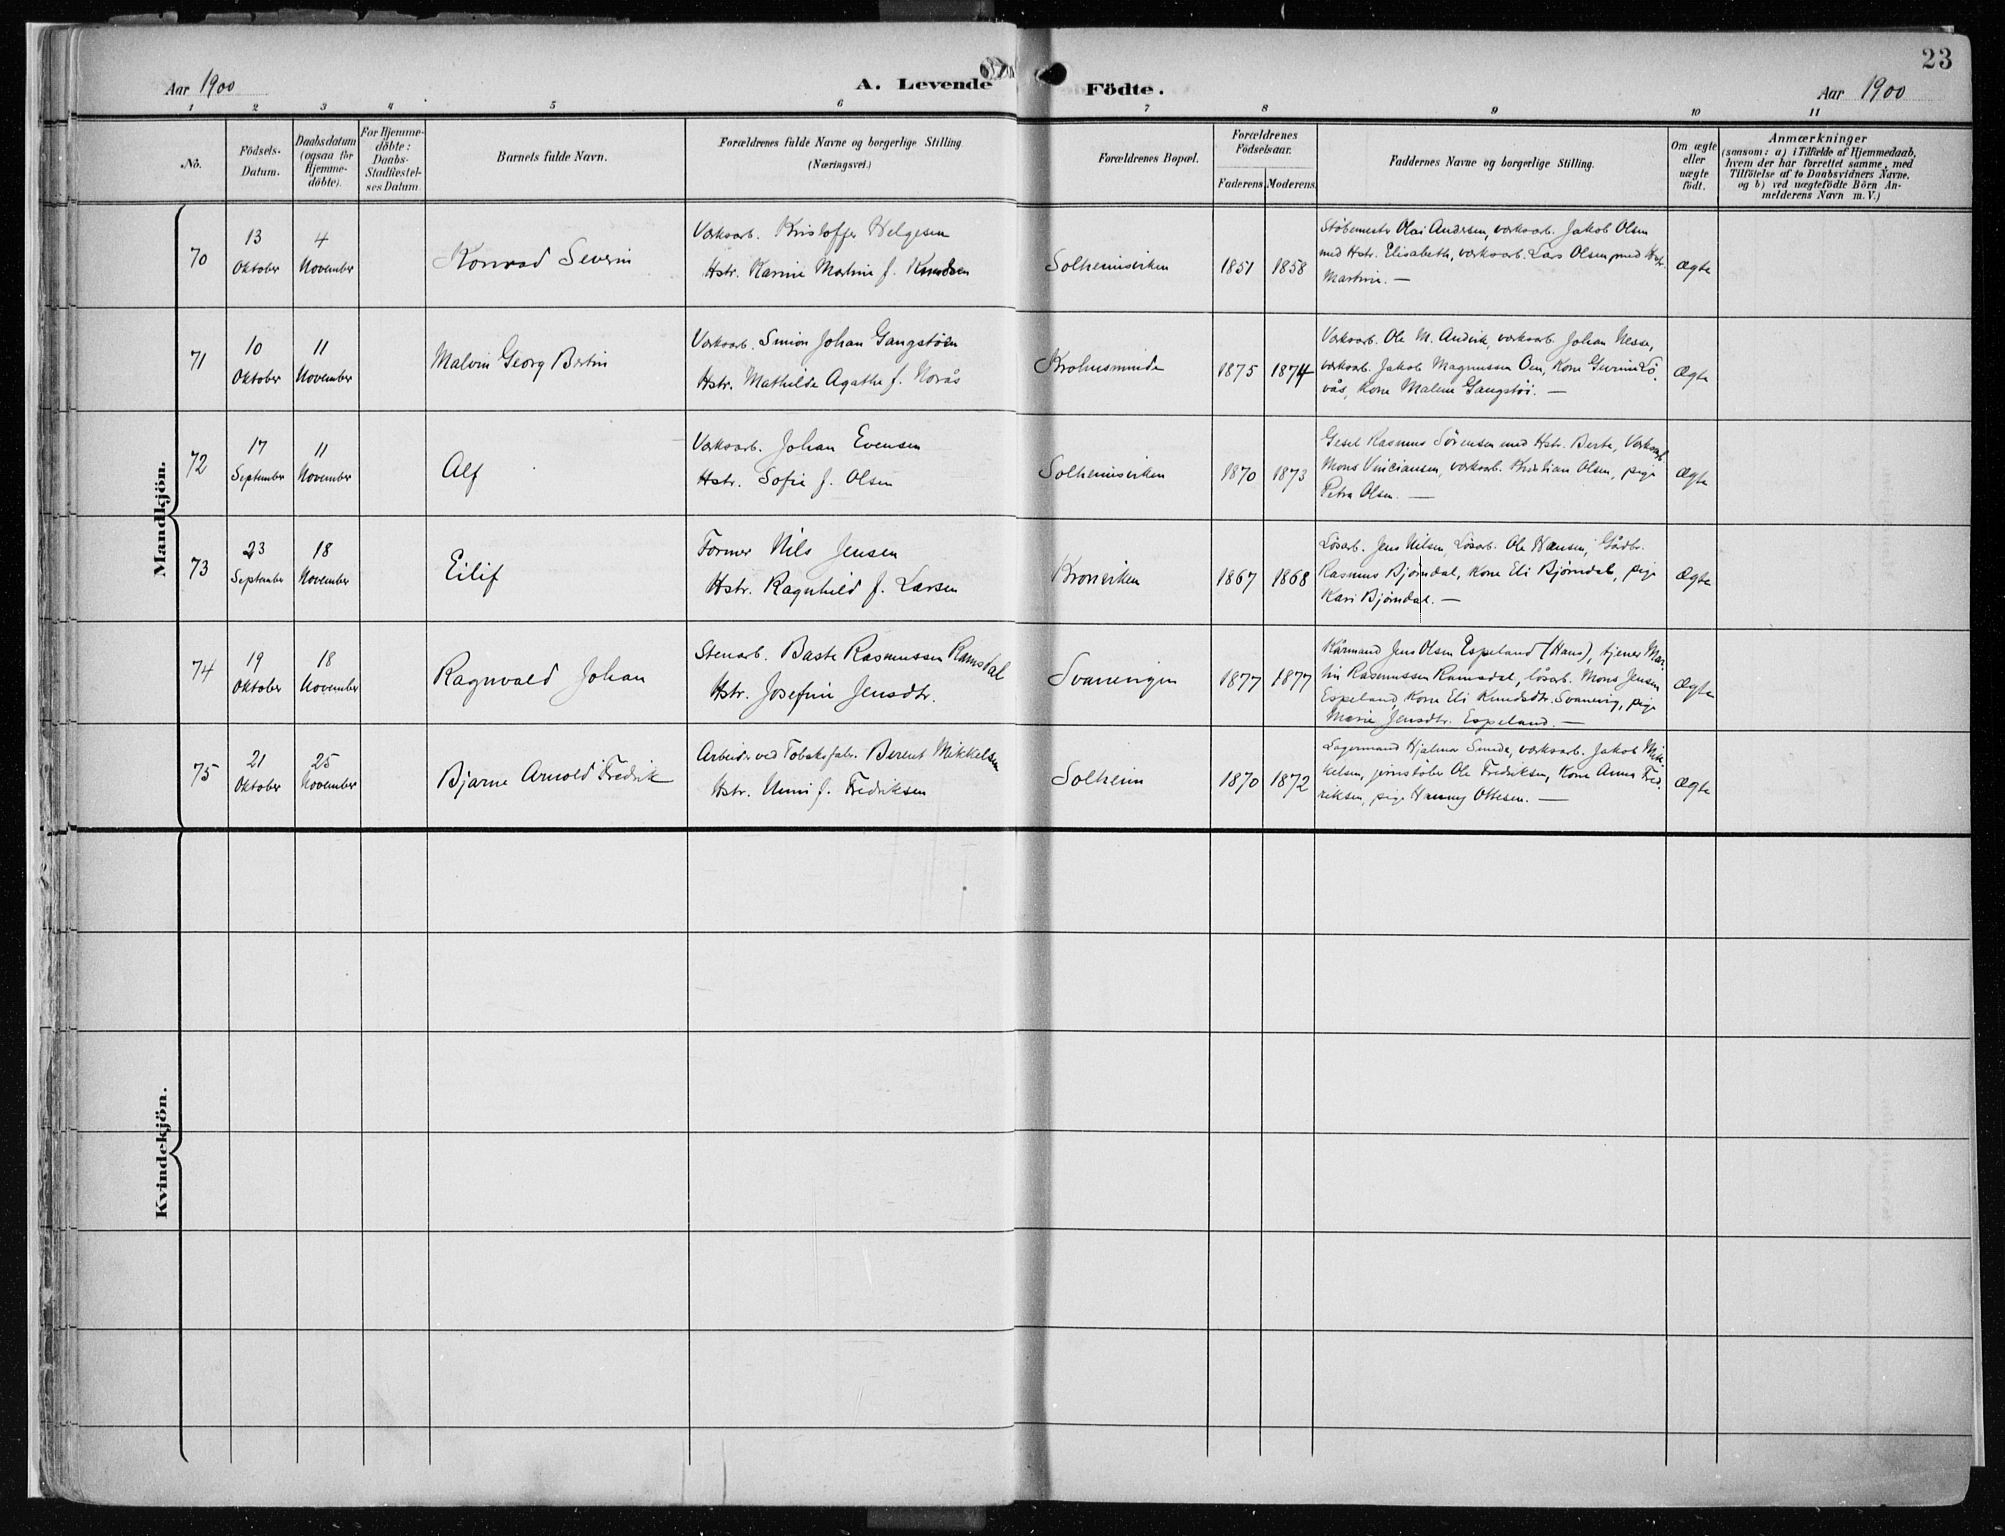 23
Aar 1900
A. Levende Födte.
Aar 1900
1 2 3 4 5 6 7 8 9 10 11
No.
Födsels-
Datum.
Daabsdatum
(ogsaa for
Hjemme-
döbte).
For Hjemme-
döbte:
Daabs-
Stadfæstel-
ses Datum
Barnets fulde Navn.
Forældrenes fulde Navne og borgerlige Stilling.
(Næringsvei.)
Forældrenes Bopæl.
Forældrenes
Födselsaar.
Faderens Moderens.
Faddernes Navne og borgerlige Stilling.
Om ægte
eller
uægte
födt.
Anmærkninger
(saasom: a) i Tilfælde af Hjemmedaab,
hvem der har forrettet samme, med
Tilföielse af to Daabsvidners Navne.
og b) ved uægtefödte Börn An-
melderens Navn m. V.)
Mandkjön.
70
13
Oktober
4
November
Konrad Severin
Værksarb. Kristoffer Helgesen
Hstr. Karine Martine f. Knudsen
Solheimsviken
1851 1858
Støbemester Olai Andersen, værksarb. Jakob Olsen
med Hstr. Elisabeth, værksarb. Lars Olsen med Hstr.
Martine. —
Ægte
71
10
Oktober
11
November
Malvin Georg Bertin
Værksarb. Simon Johan Gangstøen
Hstr. Mathilde Agathe f. Norås
Krohnsminde
1875 1874
Værksarb. Ole M. Andvik, værksarb. Johan Nesse,
værksarb. Jakob Magnussen Oen, Kone Gurine Lö-
vås, Kone Malene Gangstøi. —
Ægte
72
17
September
11
November
Alf
Værksarb. Johan Evensen
Hstr. Sofie f. Olsen
Solheimsviken
1870 1873
Gesel Rasmus Sørensen med Hstr. Berte, Værksarb.
Mons Vinciansen, værksarb. Kristian Olsen, pige
Petra Olsen. —
Ægte
73
23
September
18
November
Eilif
Former Nils Jensen
Hstr. Ragnhild f. Larsen
Kronviken
1867 1868
Løsarb. Jens Nilsen, Løsarb. Ole Hansen, Gådbr.
Rasmus Bjørndal, Kone Eli Bjørndal, pige
Kari Bjørndal. —
Ægte
74
19
Oktober
18
November
Ragnvald Johan
Stenarb. Baste Rasmussen Ramsdal
Hstr. Josefine Jensdtr.
Svanevigen
1877 1877
Kårmand Jens Olsen Espeland (Haus), tjener Mar-
tin Rasmussen Ramsdal, løsarb. Mons Jensen
Espeland, Kone Eli Knudsdtr. Svanevig, pige
Marie Jensdtr. Espeland. —
Ægte
75
21
Oktober
25
November
Bjarne Arnold Fredrik
Arbeider ved Tobaksfabr. Berent Mikkelsen
Hstr. Unni f. Fredriksen
Solheim
1870 1872
Lagermand Hjalmar Sunde, værksarb. Jakob Mik-
kelsen, jernstøber Ole Fredriksen, Kone Anna Fred-
riksen, pige Hanny Ottesen. —
Ægte
Kvindekjön.